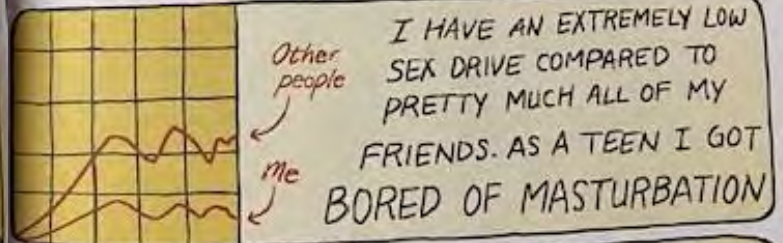 Other
people
Me
I HAVE AN EXTREMELY LOW
SEX DRIVE COMPARED TO
PRETTY MUCH ALL OF MY
FRIENDS. AS A TEEN I GOT
BORED OF MASTURBATION